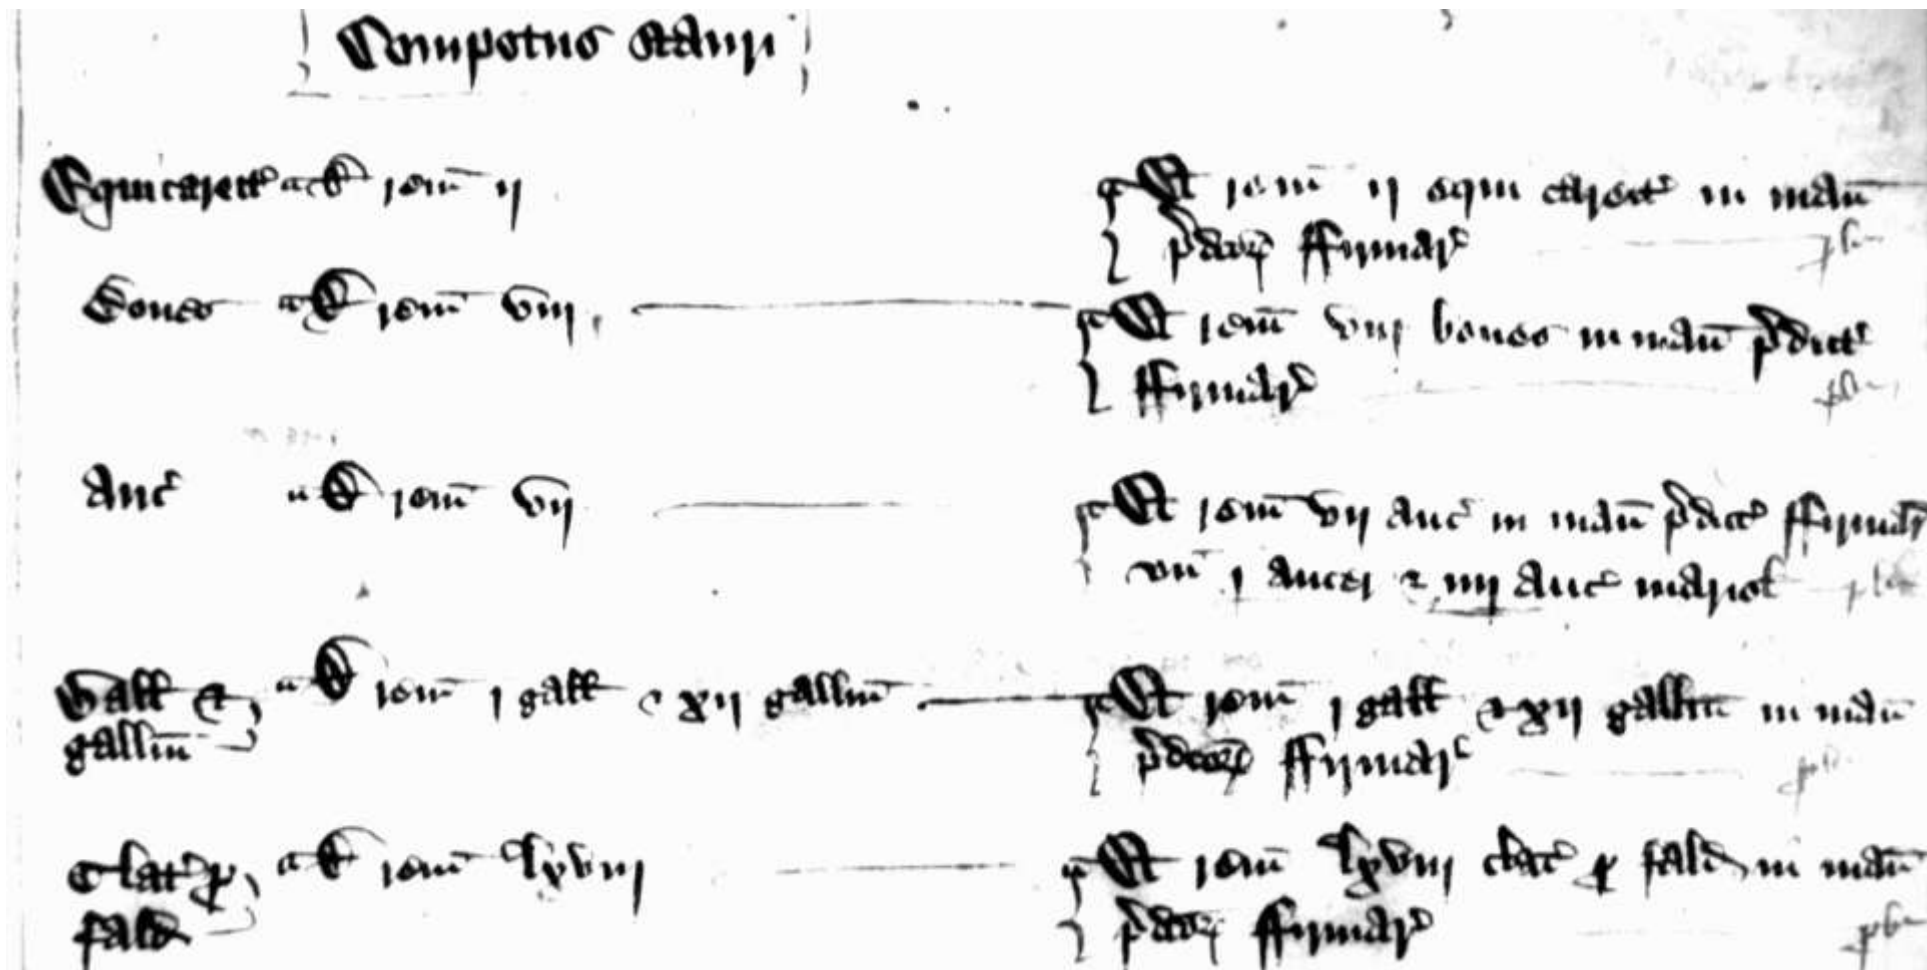 Compotus stauri
Equi carect' De rem̄ ij
Et rem̄ ij equi carect' in manu
p̄dcōꝝ ffirmar'
Boues De rem̄ viij
Et rem̄ viij boues in manū p̄dict'
ffirmar'
Auc' De rem̄ vij
Et rem̄ vij auc' in manū p̄dict' ffirmar'
vn̄ j aucer ⁊ iiij auc' mariol'
Gall' et De rem̄ j gall' ⁊ xij gallin̄
gallin̄
Et rem̄ j gall' ⁊ xij gallin̄ in manū
p̄dcōꝝ ffirmar'
Clat' ꝓ De rem̄ lxviij
fald'
Et rem̄ lxviij clat' ꝓ fald' in manū
p̄dcōꝝ ffirmar'